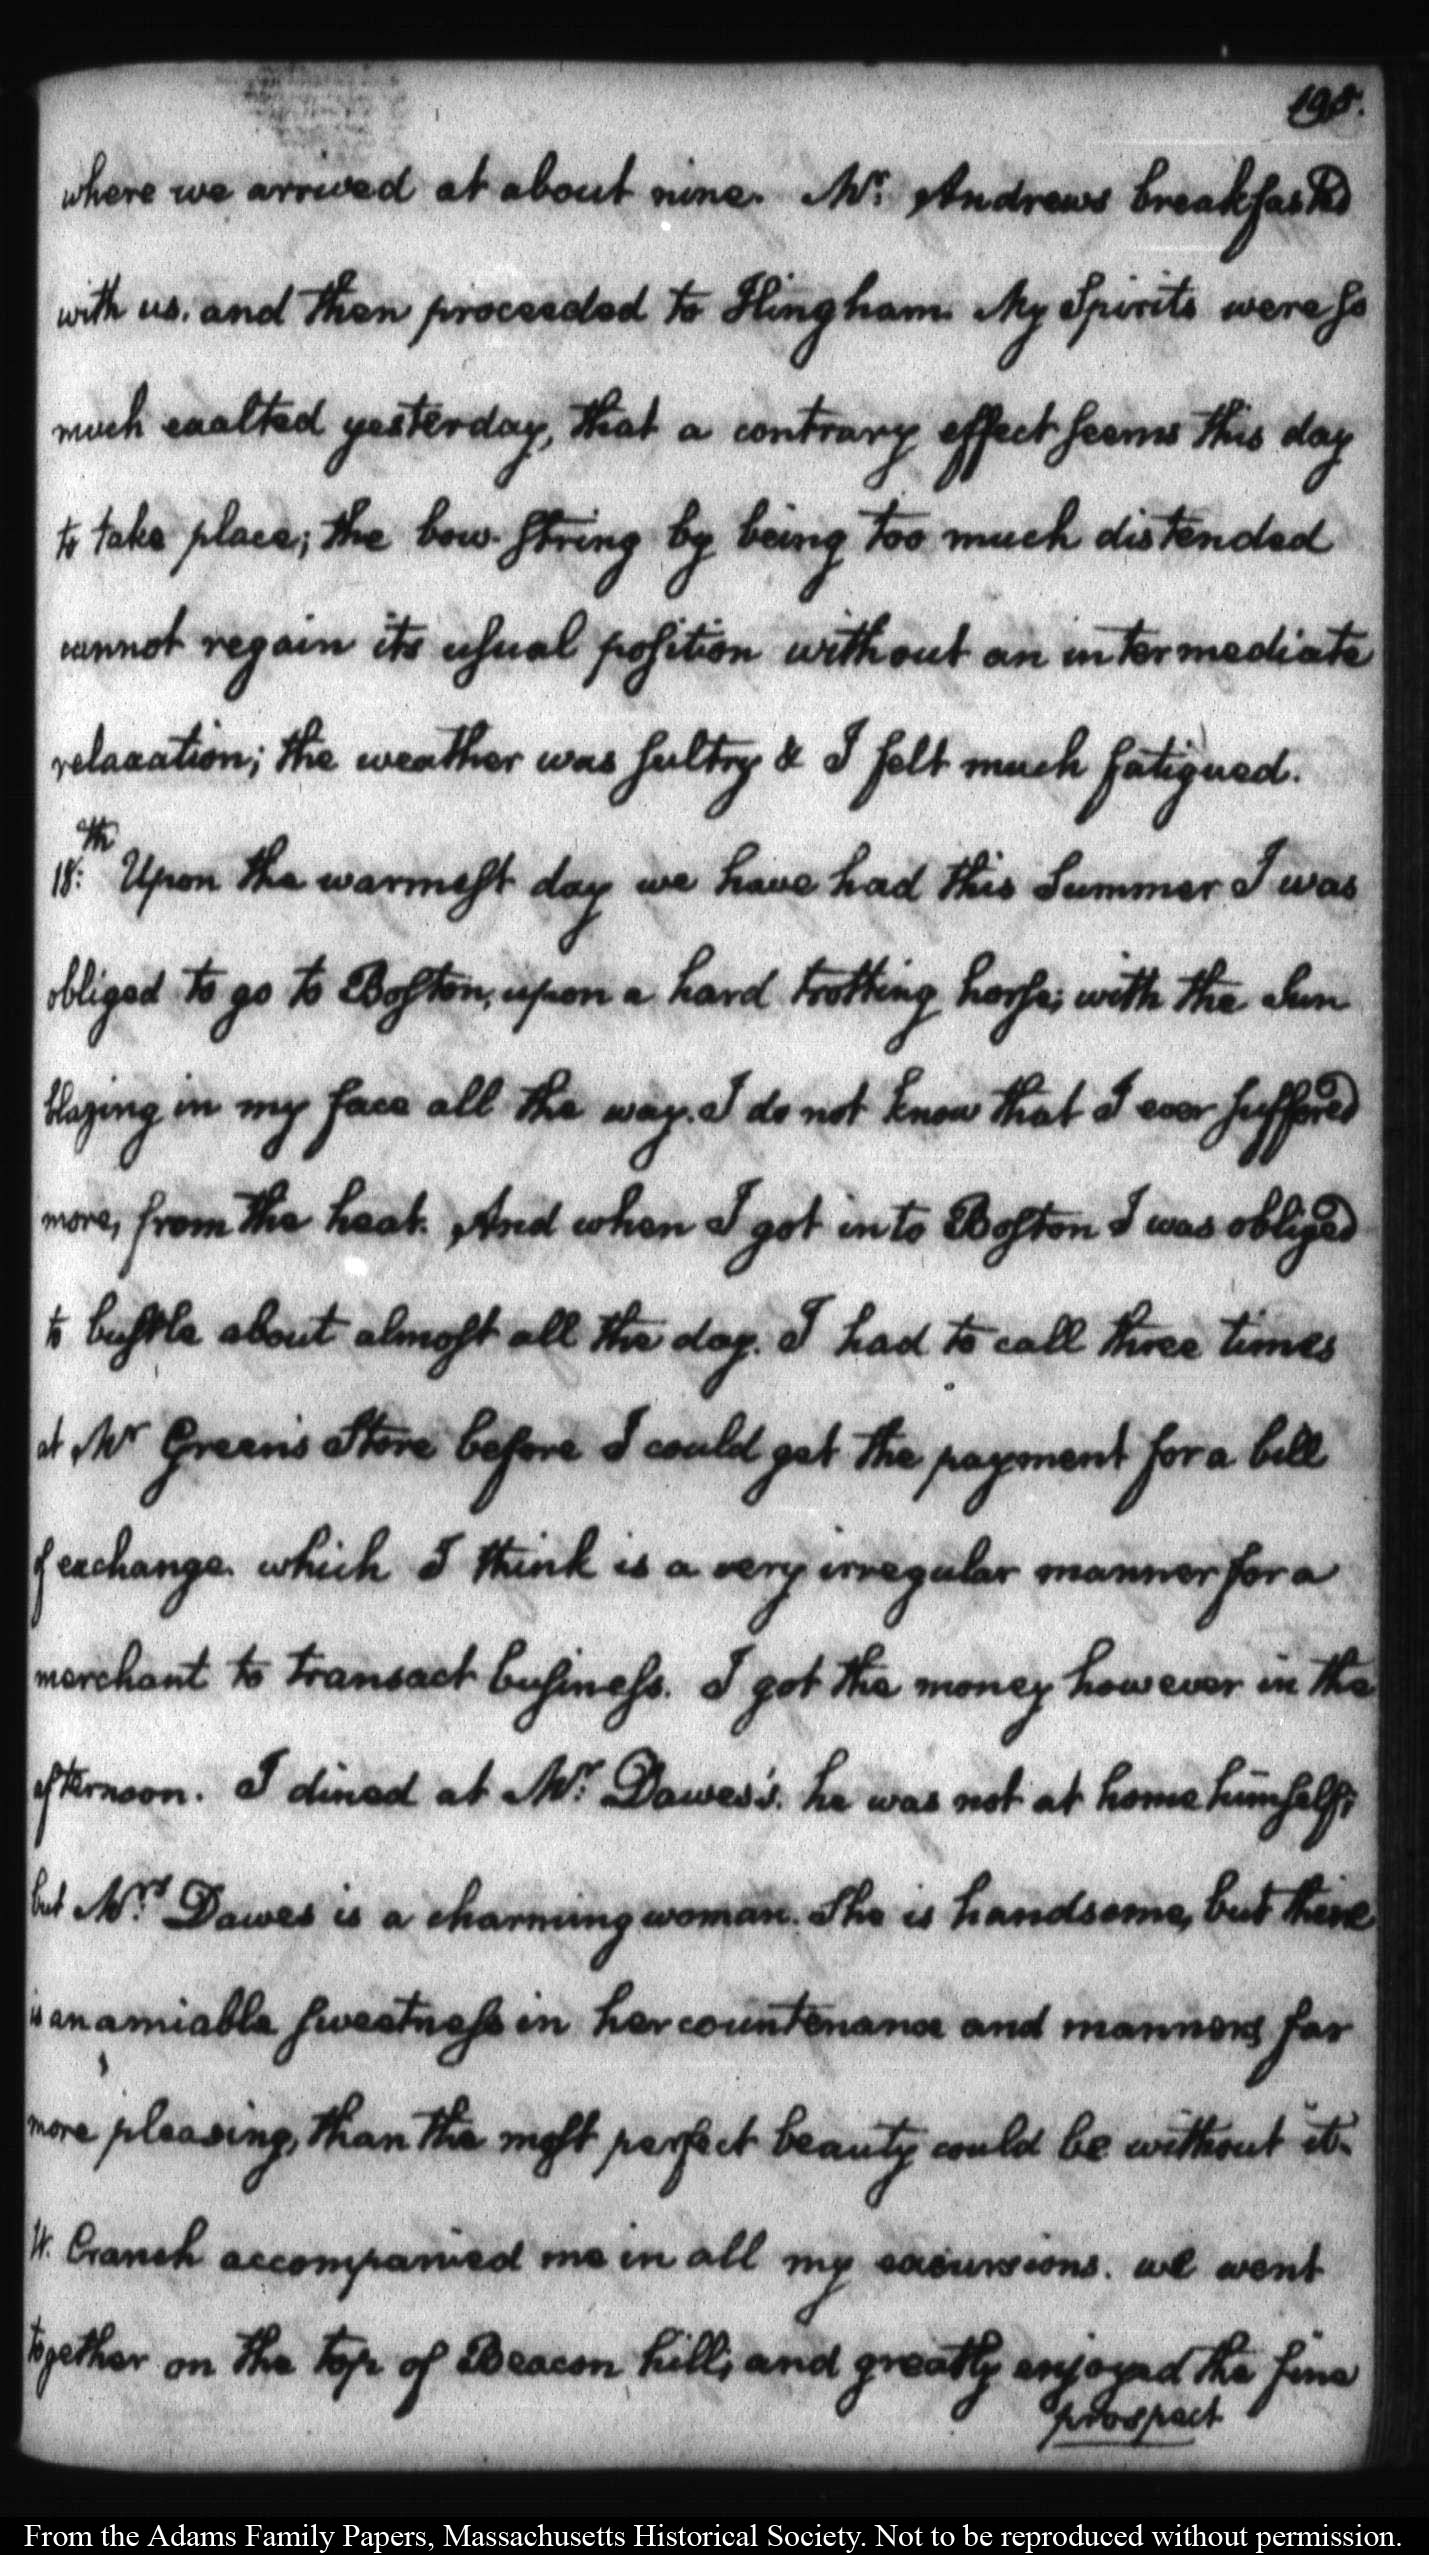 195.
where we arrived at about nine. Mr: Andrews breakfasted
with us. and then proceeded to Hingham. My Spirits were so
much exalted yesterday, that a contrary effect seems this day
to take place; the bow-string by being too much distended
cannot regain its usual position without an intermediate
relaxation; the weather was sultry & I felt much fatigued.
18:th Upon the warmest day we have had this Summer I was
obliged to go to Boston, upon a hard trotting horse; with the Sun
blazing in my face all the way. I do not know that I ever suffered
more, from the heat. And when I got into Boston I was obliged
to bustle about almost all the day. I had to call three times
at Mr Green's Store before I could get the payment for a bill
of exchange. which I think is a very irregular manner for a
merchant to transact business. I got the money however in the
afternoon. I dined at Mr: Dawes's. he was not at home himself;
but Mrs: Dawes is a charming woman. She is handsome, but there
is an amiable sweetness in her countenance and manners, far
more pleasing, than the most perfect beauty could be without it.
W. Cranch accompanied me in all my excursions. we went
together on the top of Beacon hill; and greatly enjoyed the fine
prospect
From the Adams Family Papers, Massachusetts Historical Society. Not to be reproduced without permission.